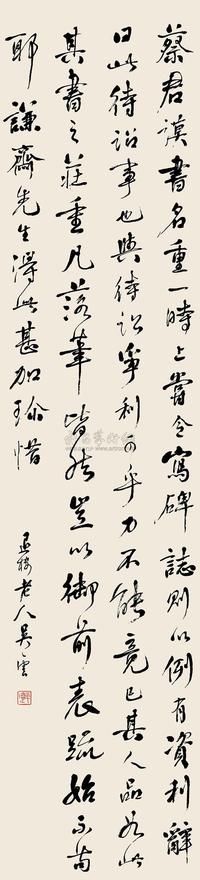 蔡君謨書名重一時上嘗令寫碑誌則以例有資利辭
曰此待詔事也與待詔爭利可乎力不能竟已其人品如此
其書之莊重凡落筆皆然豈以御前表疏始不苟
耶 謙齋先生得此甚加珍惜
退樓老人吳雲